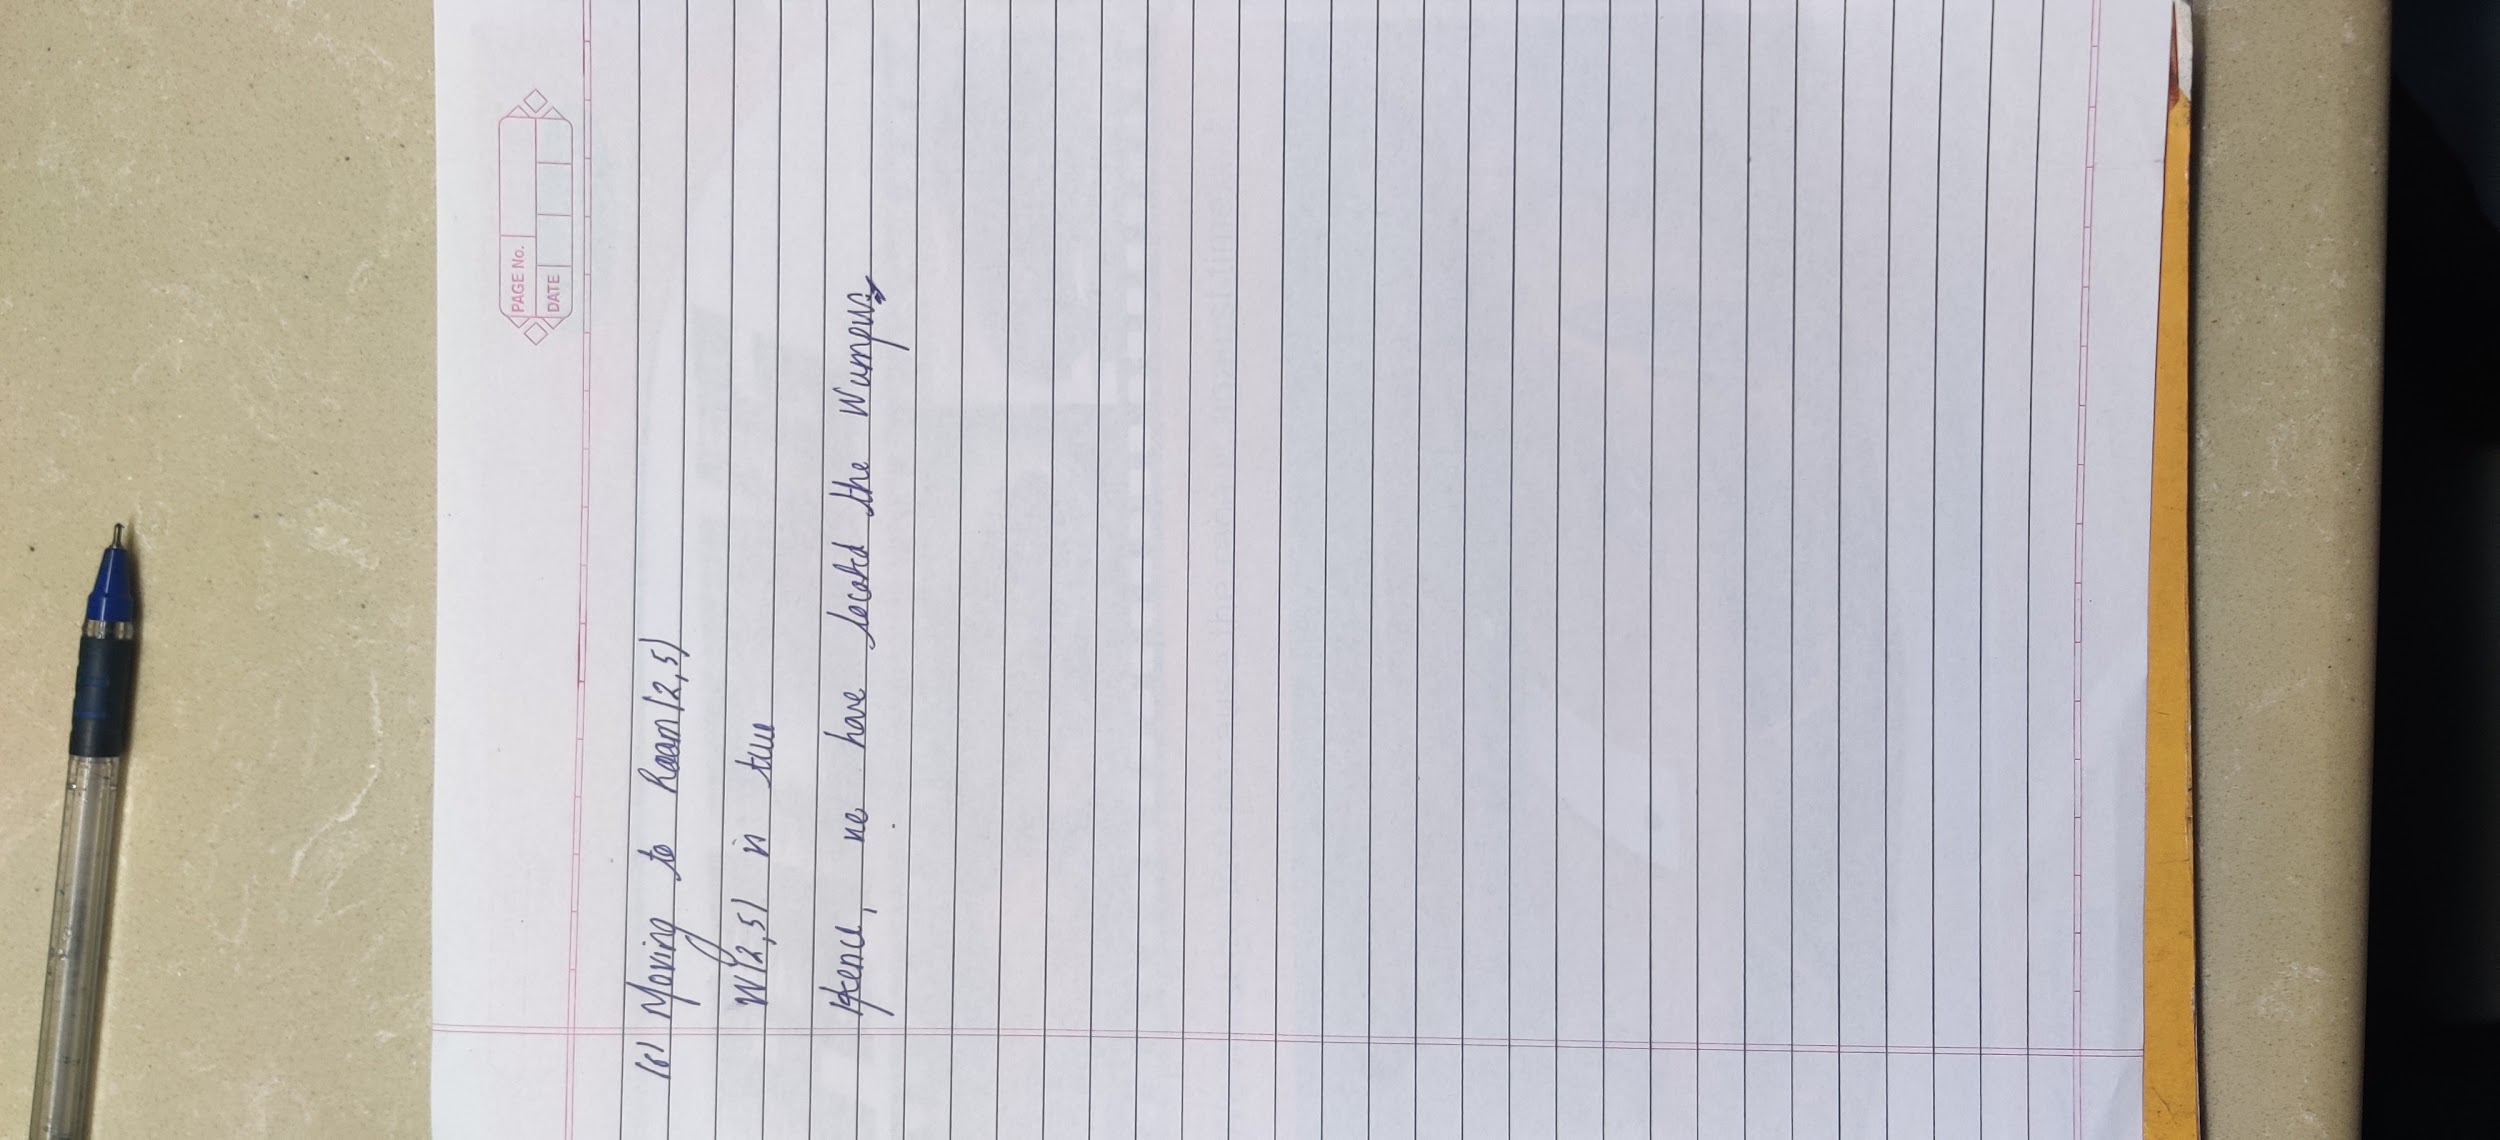 PAGE No.
DATE
(6) Moving to Room(2,5)
W(2,5) is true
Hence, we have located the Wumpus